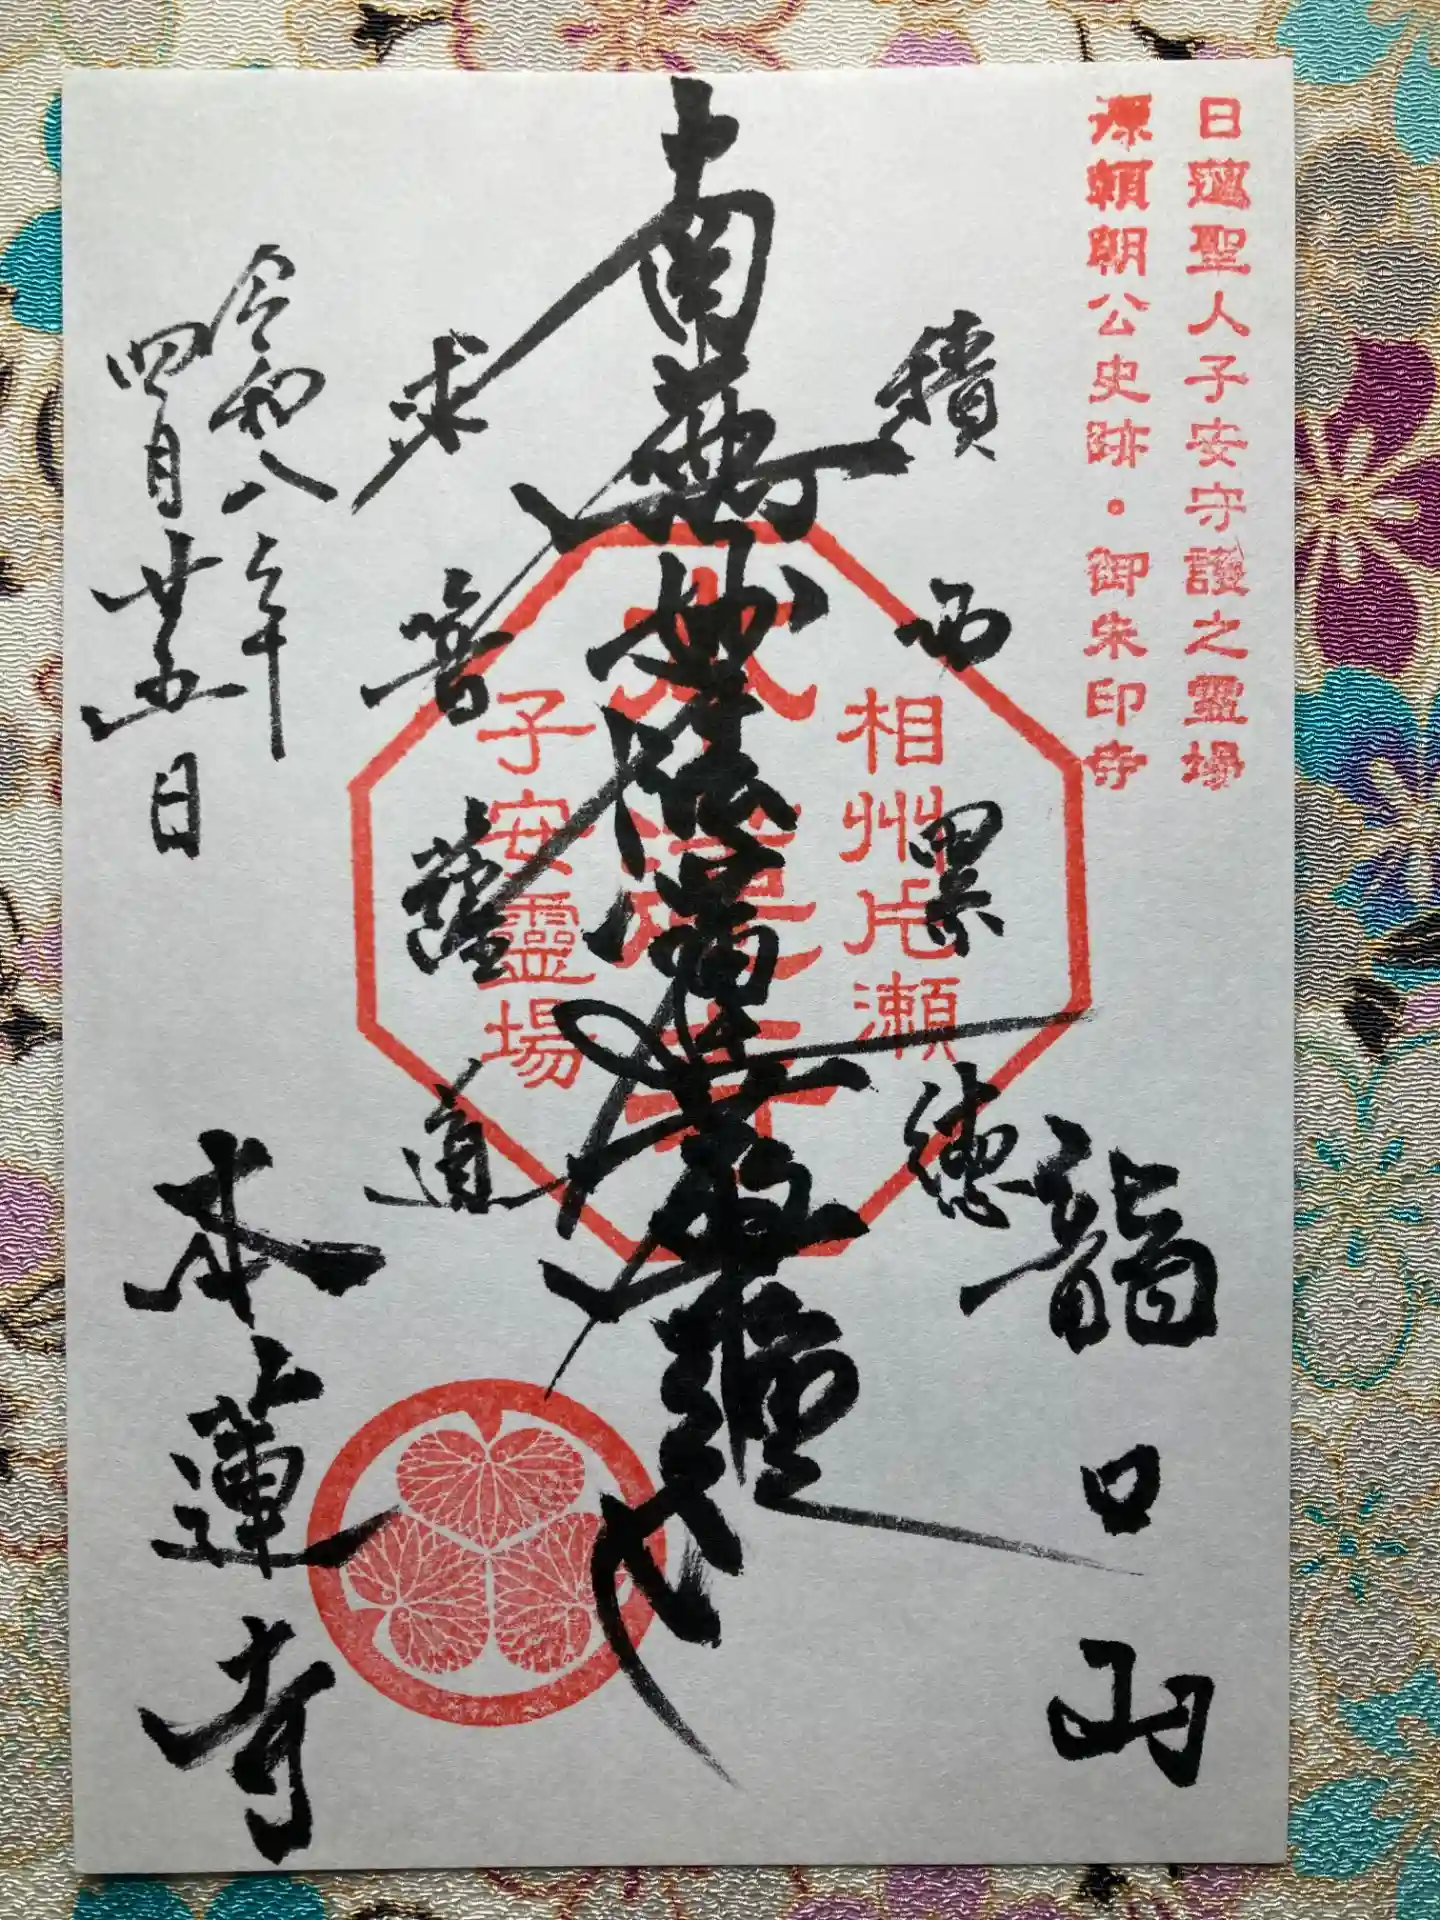 日蓮聖人子安守護之靈場
源頼朝公史跡・御朱印寺
龍口山
積功累徳
南無妙法蓮華経
求菩薩道
相州片瀬
本蓮寺
子安靈場
令和八年
四月廿五日
本蓮寺